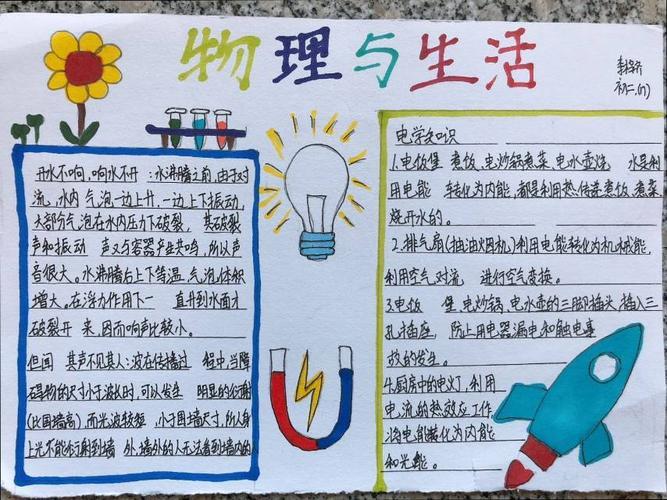 物理与生活
初二.(7)
开水不响,响水不开:水沸腾之前,由于对
流,水内气泡一边上升,一边上下振动,
大部分气泡在水内压力下破裂,其破裂
声和振动 声又与容器产生共鸣,所以声
音很大。水沸腾后上下等温,气泡体积
增大。在浮力作用下一 直升到水面才
破裂开 来,因而响声比较小。
但闻 其声不见其人:波在传播过 程中,当障
碍物的尺寸小于波长时,可以发生 明显的衍射
(比围墙高),而光波较短 小于围墙尺寸,所人身
上光不能衍射到墙 外,墙外的人无法看到墙内的
电学知识
1.电饭煲 煮饭、电炒锅煮菜、电水壶烧 水是利
用电能 转化为内能,都是利用热传递煮饭、煮菜、
烧开水的。
2.排气扇(抽油烟机)利用电能转化为机械能,
利用空气对流 进行空气变换。
3.电饭 煲、电炒锅、电水壶的三脚插头,插入三
孔插座, 防止用电器漏电和触电事
故的发生。
4.厨房中的电灯,利用
电流的热效应工作,
将电能转化为内能
和光能。